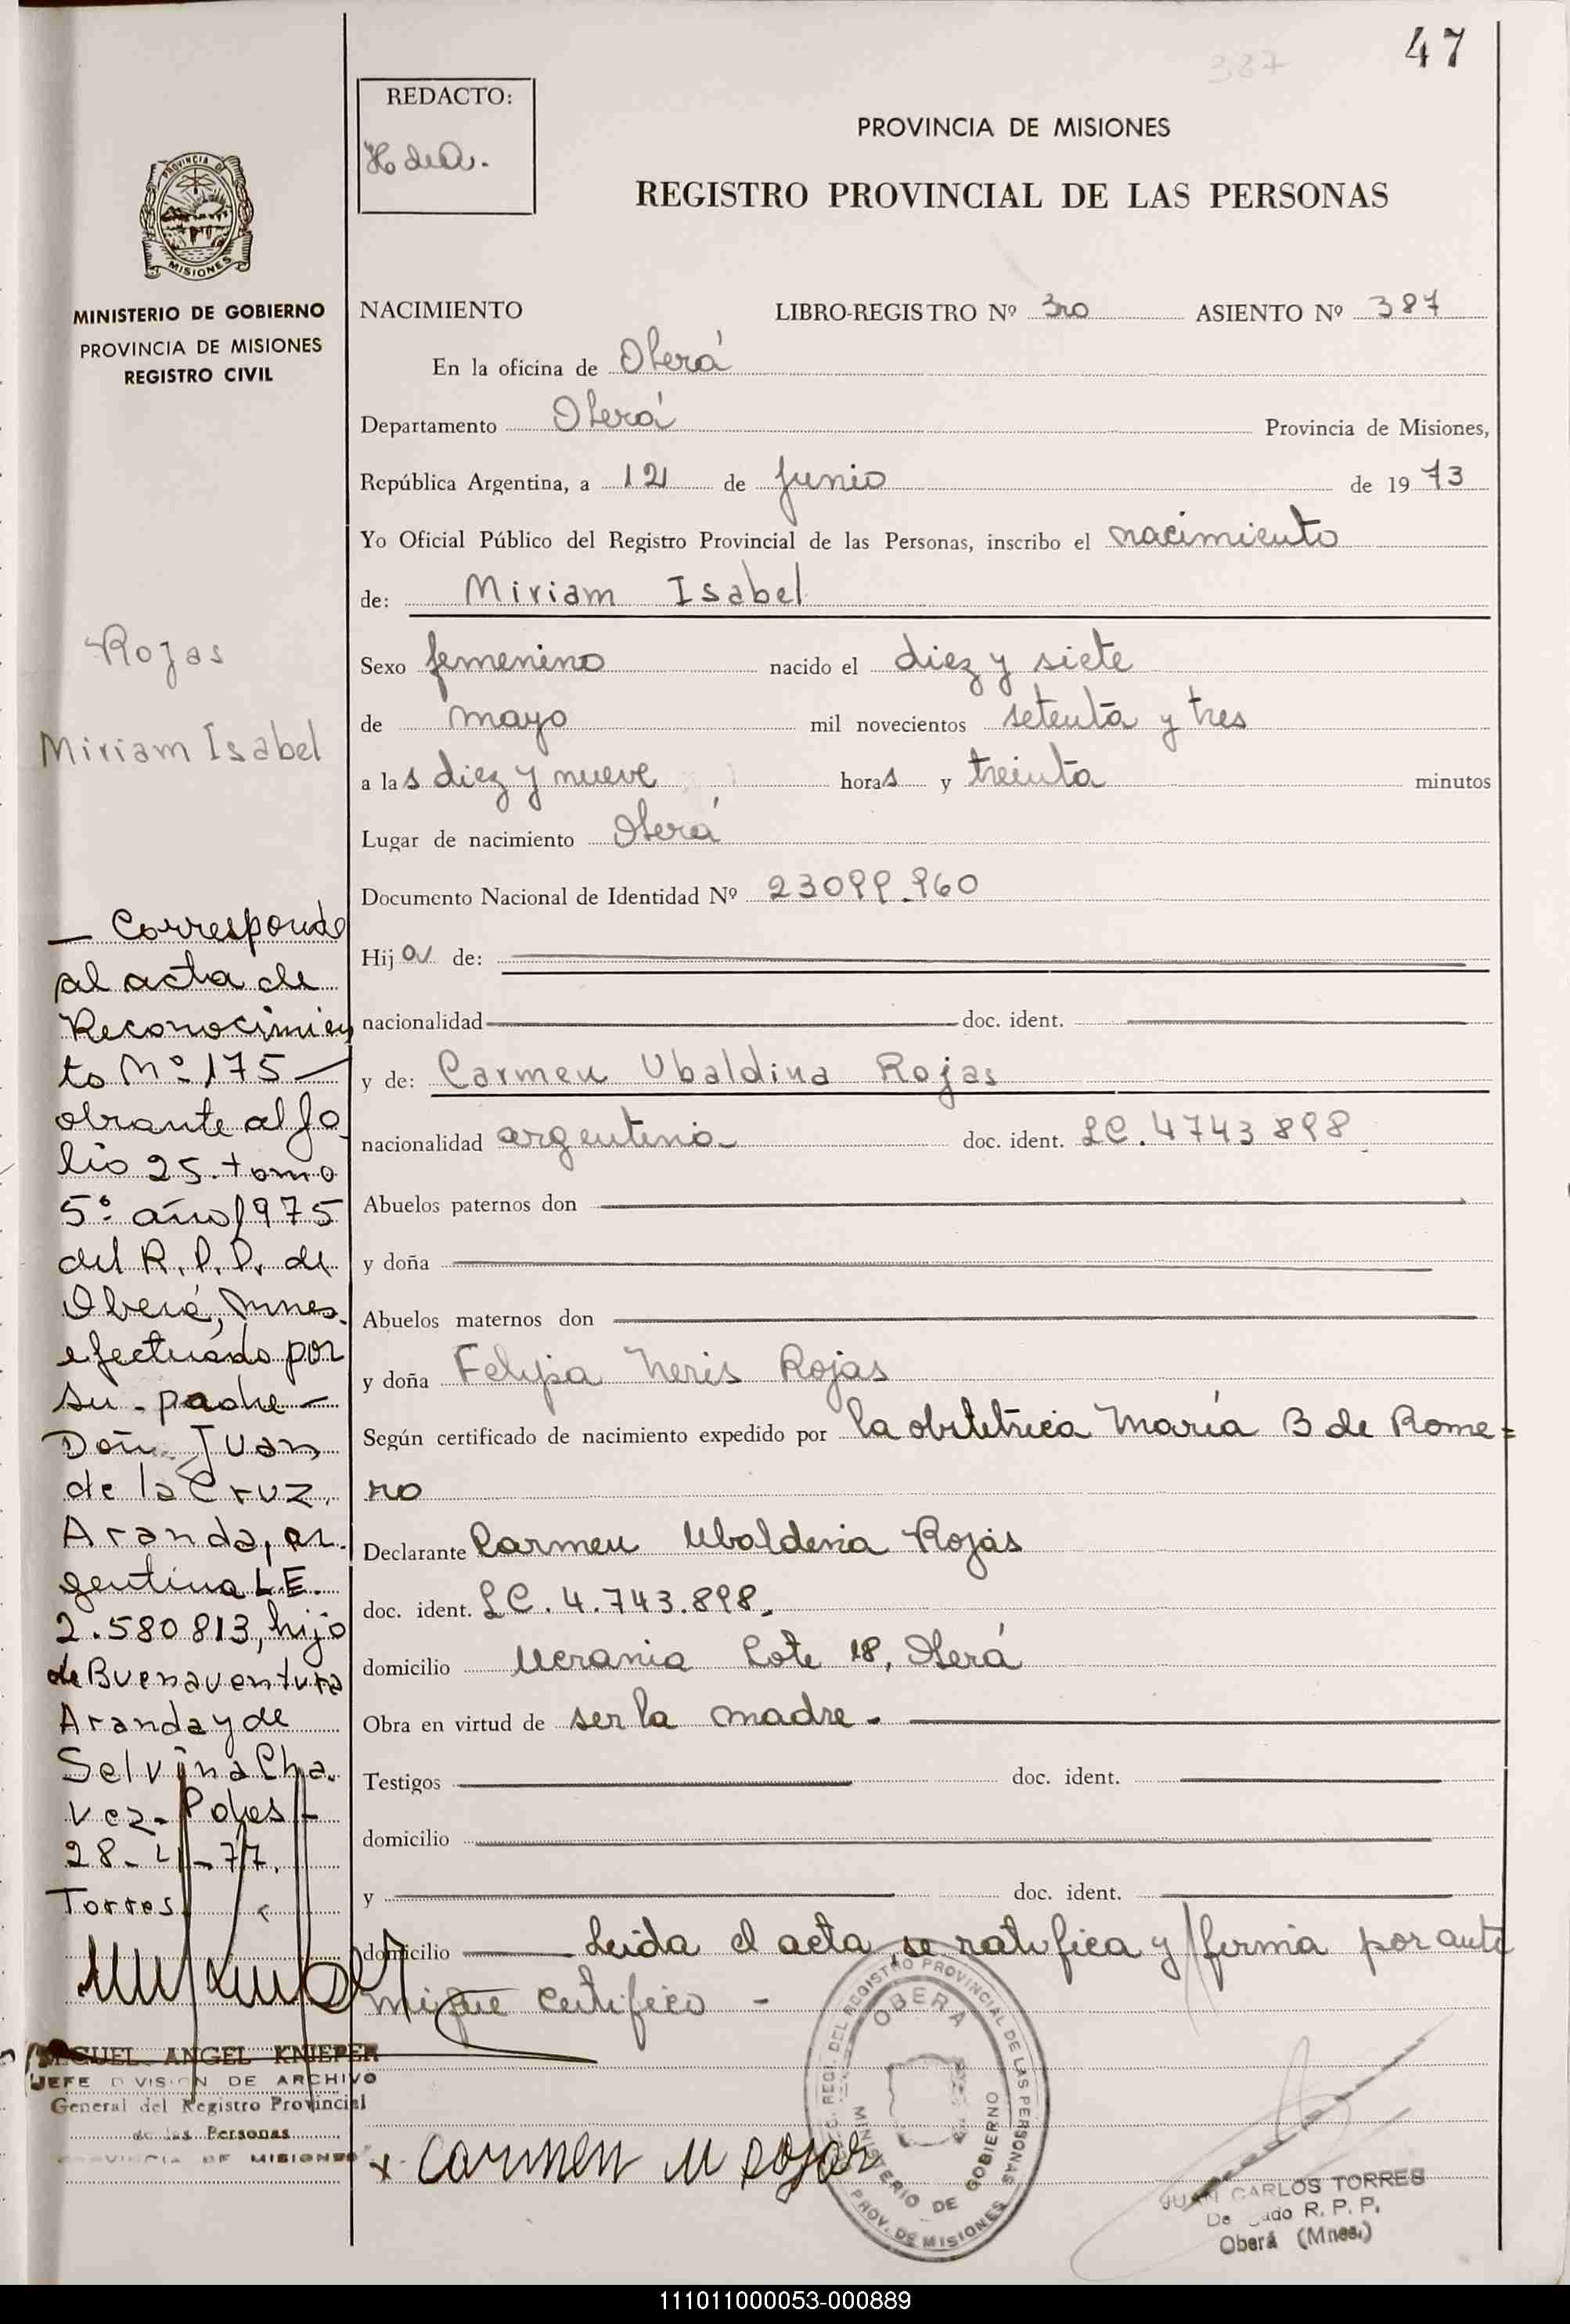 47
387
REDACTO:
H de A.
PROVINCIA DE MISIONES
REGISTRO PROVINCIAL DE LAS PERSONAS
PROVINCIA DE
MISIONES
MINISTERIO DE GOBIERNO
PROVINCIA DE MISIONES
REGISTRO CIVIL
NACIMIENTO LIBRO-REGISTRO Nº 3ro ASIENTO Nº 387
En la oficina de Oberá
Departamento Oberá Provincia de Misiones,
República Argentina, a 12 de Junio de 1973
Yo Oficial Público del Registro Provincial de las Personas, inscribo el nacimiento
de: Miriam Isabel
Sexo femenino nacido el diez y siete
de mayo mil novecientos setenta y tres
a las diez y nueve horas y treinta minutos
Lugar de nacimiento Oberá
Documento Nacional de Identidad Nº 23099.960
Hija de:
nacionalidad doc. ident.
y de: Carmen Ubaldina Rojas
nacionalidad argentina doc. ident. LC. 4743898
Abuelos paternos don
y doña
Abuelos maternos don
y doña Felipa Neris Rojas
Según certificado de nacimiento expedido por la obstetrica María B de Rome=
ro
Declarante Carmen Ubaldina Rojas
doc. ident. LC. 4.743.898.
domicilio Ucrania Lote 18, Oberá
Obra en virtud de ser la madre.
Testigos doc. ident.
domicilio
y doc. ident.
domicilio Leida el acta, se ratifica y firma por ante
mi que certifico -
x Carmen U Rojas
REGI. DEL REGISTRO PROVINCIAL DE LAS PERSONAS
OBERA
MINISTERIO DE GOBIERNO
PROV. DE MISIONES
JUAN CARLOS TORRES
Delegado R. P. P.
Oberá (Mnes.)
Rojas
Miriam Isabel
— Corresponde
al acta de
Reconocimien
to Nº 175 —
obrante al fo
lio 25. tomo
5º año 1975
del R. P. P. de
Oberá, Mnes.
efectuado por
su - padre —
Don Juan
de la Cruz
Aranda, ar.
gentino L.E.
2.580813, hijo
de Buenaventura
Aranda y de
Selvina Cha.
vez. Pdas -
28-4-77.
Torres
MIGUEL ANGEL KNIEPER
JEFE DIVISION DE ARCHIVO
General del Registro Provincial
de las Personas
PROVINCIA DE MISIONES
111011000053-000889